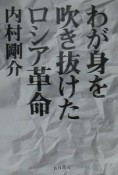 わが身を
吹き抜けた
ロシア革命
内村剛介